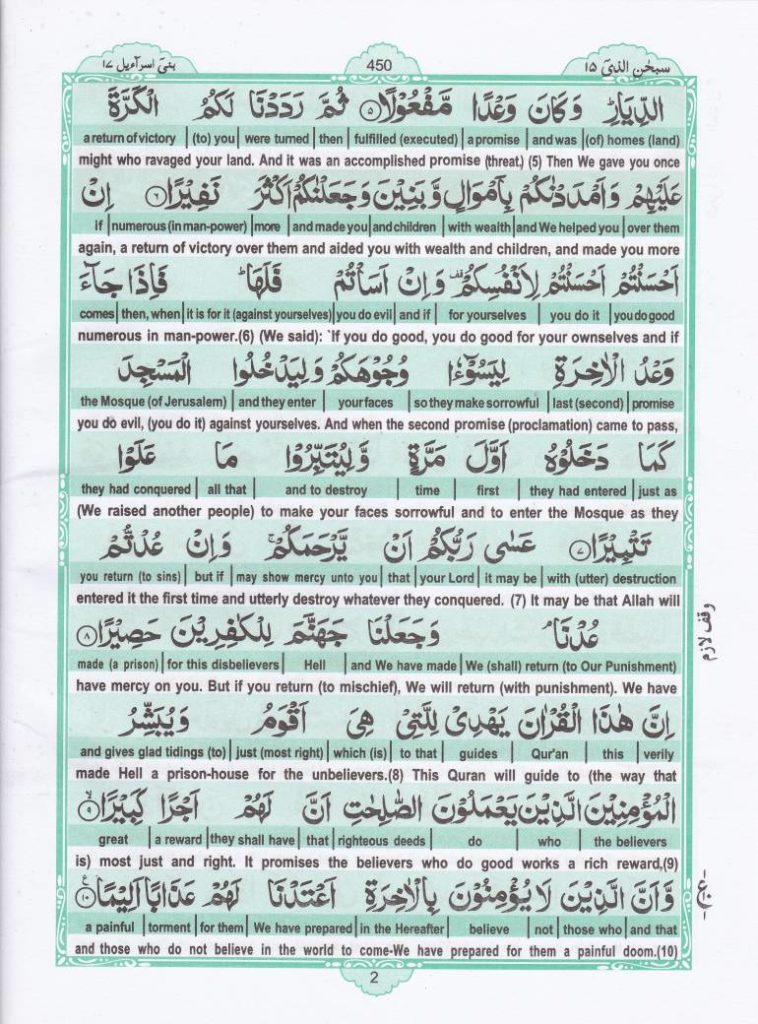 سبحٰن الذیٓ ۱۵
450
بنیٓ اسرآءیل ۱۷
الدِّيَارِؕ وَكَانَ وَعْدًا مَّفْعُوْلًا ۵ ثُمَّ رَدَدْنَا لَكُمُ الْكَرَّةَ
a return of victory | (to) you | were turned | then | fulfilled (executed) | a promise | and was | (of) homes (land)
might who ravaged your land. And it was an accomplished promise (threat,) (5) Then We gave you once
عَلَيْهِمْ وَاَمْدَدْنٰكُمْ بِاَمْوَالٍ وَّبَنِيْنَ وَجَعَلْنٰكُمْ اَكْثَرَ نَفِيْرًا ۶ اِنْ
If | numerous (in man-power) | more | and made you | and children | with wealth | and We helped you | over them
again, a return of victory over them and aided you with wealth and children, and made you more
اَحْسَنْتُمْ اَحْسَنْتُمْ لِاَنْفُسِكُمْ وَاِنْ اَسَاْتُمْ فَلَهَاؕ فَاِذَا جَآءَ
comes | then, when | it is for it (against yourselves) | you do evil | and if | for yourselves | you do it | you do good
numerous in man-power.(6) (We said): `If you do good, you do good for your ownselves and if
وَعْدُ الْاٰخِرَةِ لِيَسُوْٓءٗا وُجُوْهَكُمْ وَلِيَدْخُلُوا الْمَسْجِدَ
the Mosque (of Jerusalem) | and they enter | your faces | so they make sorrowful | last (second) | promise
you do evil, (you do it) against yourselves. And when the second promise (proclamation) came to pass,
كَمَا دَخَلُوْهُ اَوَّلَ مَرَّةٍ وَّلِيُتَبِّرُوْا مَا عَلَوْا
they had conquered | all that | and to destroy | time | first | they had entered | just as
(We raised another people) to make your faces sorrowful and to enter the Mosque as they
تَتْبِيْرًا ۷ عَسٰى رَبُّكُمْ اَنْ يَّرْحَمَكُمْۚ وَاِنْ عُدْتُّمْ
you return (to sins) | but if | may show mercy unto you | that | your Lord | it may be | with (utter) destruction
entered it the first time and utterly destroy whatever they conquered. (7) It may be that Allah will
عُدْنَاۘ وَجَعَلْنَا جَهَنَّمَ لِلْكٰفِرِيْنَ حَصِيْرًا ۸
وقف لازم
made (a prison) | for this disbelievers | Hell | and We have made | We (shall) return (to Our Punishment)
have mercy on you. But if you return (to mischief), We will return (with punishment). We have
اِنَّ هٰذَا الْقُرْاٰنَ يَهْدِيْ لِلَّتِيْ هِيَ اَقْوَمُ وَيُبَشِّرُ
and gives glad tidings (to) | just (most right) | which (is) | to that | guides | Qur'an | this | verily
made Hell a prison-house for the unbelievers.(8) This Quran will guide to (the way that
الْمُؤْمِنِيْنَ الَّذِيْنَ يَعْمَلُوْنَ الصّٰلِحٰتِ اَنَّ لَهُمْ اَجْرًا كَبِيْرًا ۹
great | a reward | they shall have | that | righteous deeds | do | who | the believers
is) most just and right. It promises the believers who do good works a rich reward,(9)
وَّاَنَّ الَّذِيْنَ لَا يُؤْمِنُوْنَ بِالْاٰخِرَةِ اَعْتَدْنَا لَهُمْ عَذَابًا اَلِيْمًا ۱۰
a painful | torment | for them | We have prepared | in the Hereafter | believe | not | those who | and that
and those who do not believe in the world to come-We have prepared for them a painful doom.(10)
2